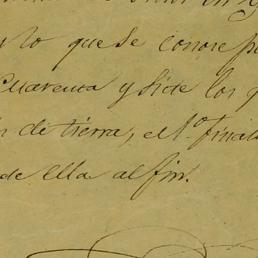 lo que se conoce
Cuarenta y siete los
de tierra, el 1º
de ella al fin.